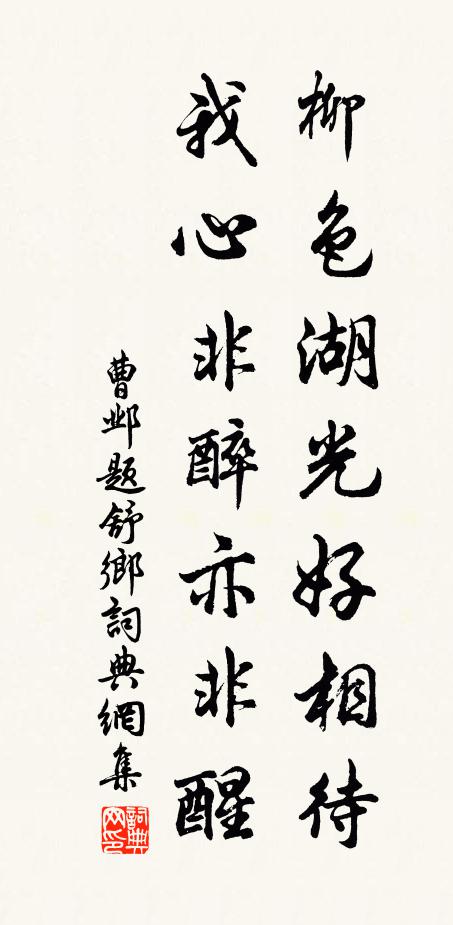 柳色湖光好相待
我心非醉亦非醒
曹邺題舒鄉詞典網集
詞典网印